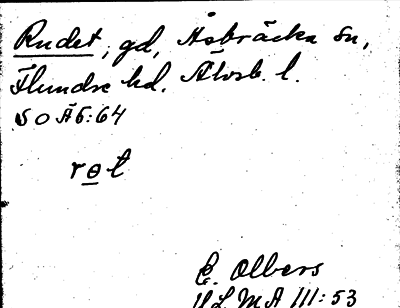 Rudet, gd, Åsbräcka sn,
Flundre hd. Älvsb. l.
SOÄ5:64
rɵt
E. Olbers
ULMA 111:53